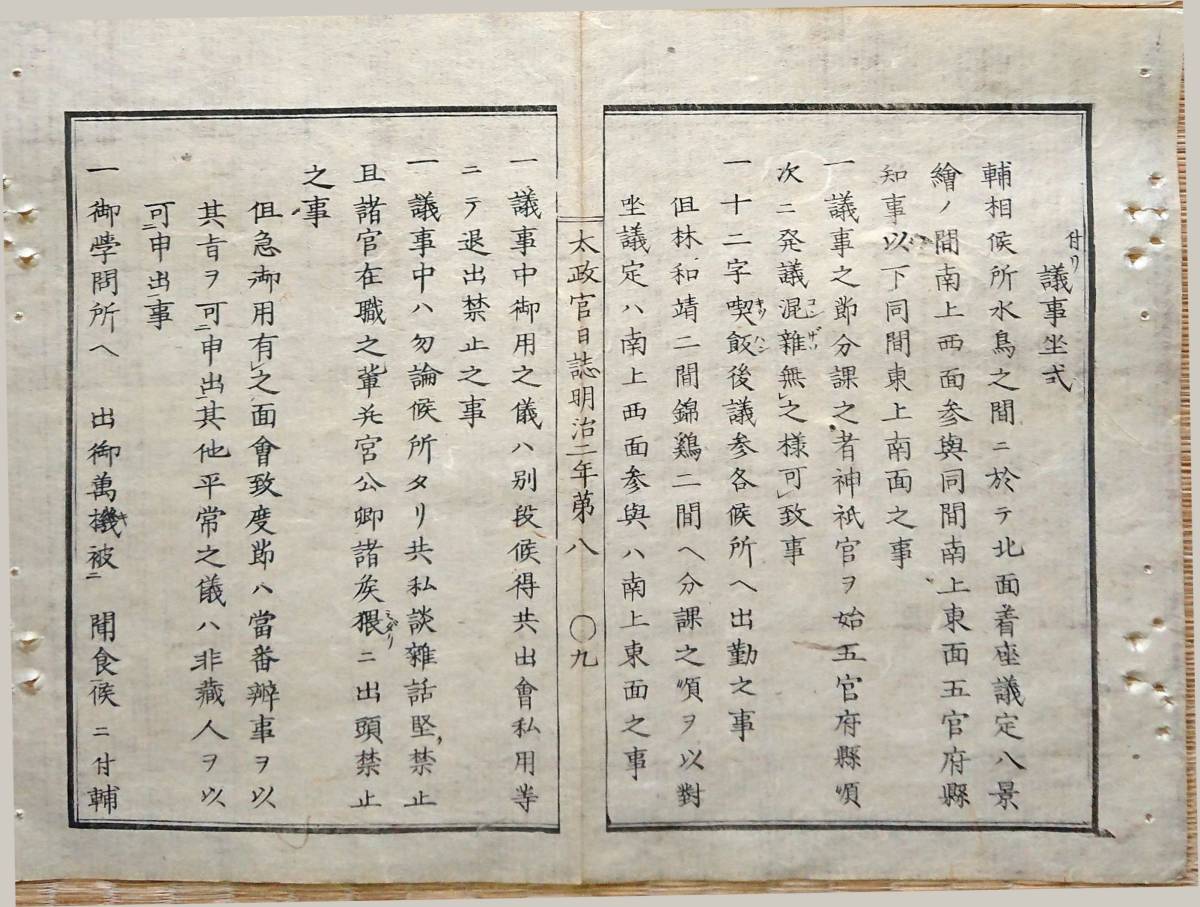 付リ 議事坐式
輔相候所水鳥之間ニ於テ北面着座議定八景
繪ノ間南上西面参與同間南上東面五官府縣
知事以下同間東上南面之事
一議事之節分課之者神祇官ヲ始五官府縣順
次ニ発議混雜無之様可致事
一十二字喫飯後議参各候所ヘ出勤之事
但林和靖二間錦鷄二間ヘ分課之順ヲ以對
坐議定ハ南上西面参與ハ南上東面之事
太政官日誌明治二年第八 〇九
一議事中御用之儀ハ別段候得共出會私用等
ニテ退出禁止之事
一議事中ハ勿論候所タリ共私談雜話堅禁止
且諸官在職之輩并宮公卿諸矦猥ニ出頭禁止
之事
但急御用有之面會致度節ハ當番辨事ヲ以
其旨ヲ可申出其他平常之儀ハ非藏人ヲ以
可申出事
一御學問所ヘ 出御萬機被 聞食候ニ付輔